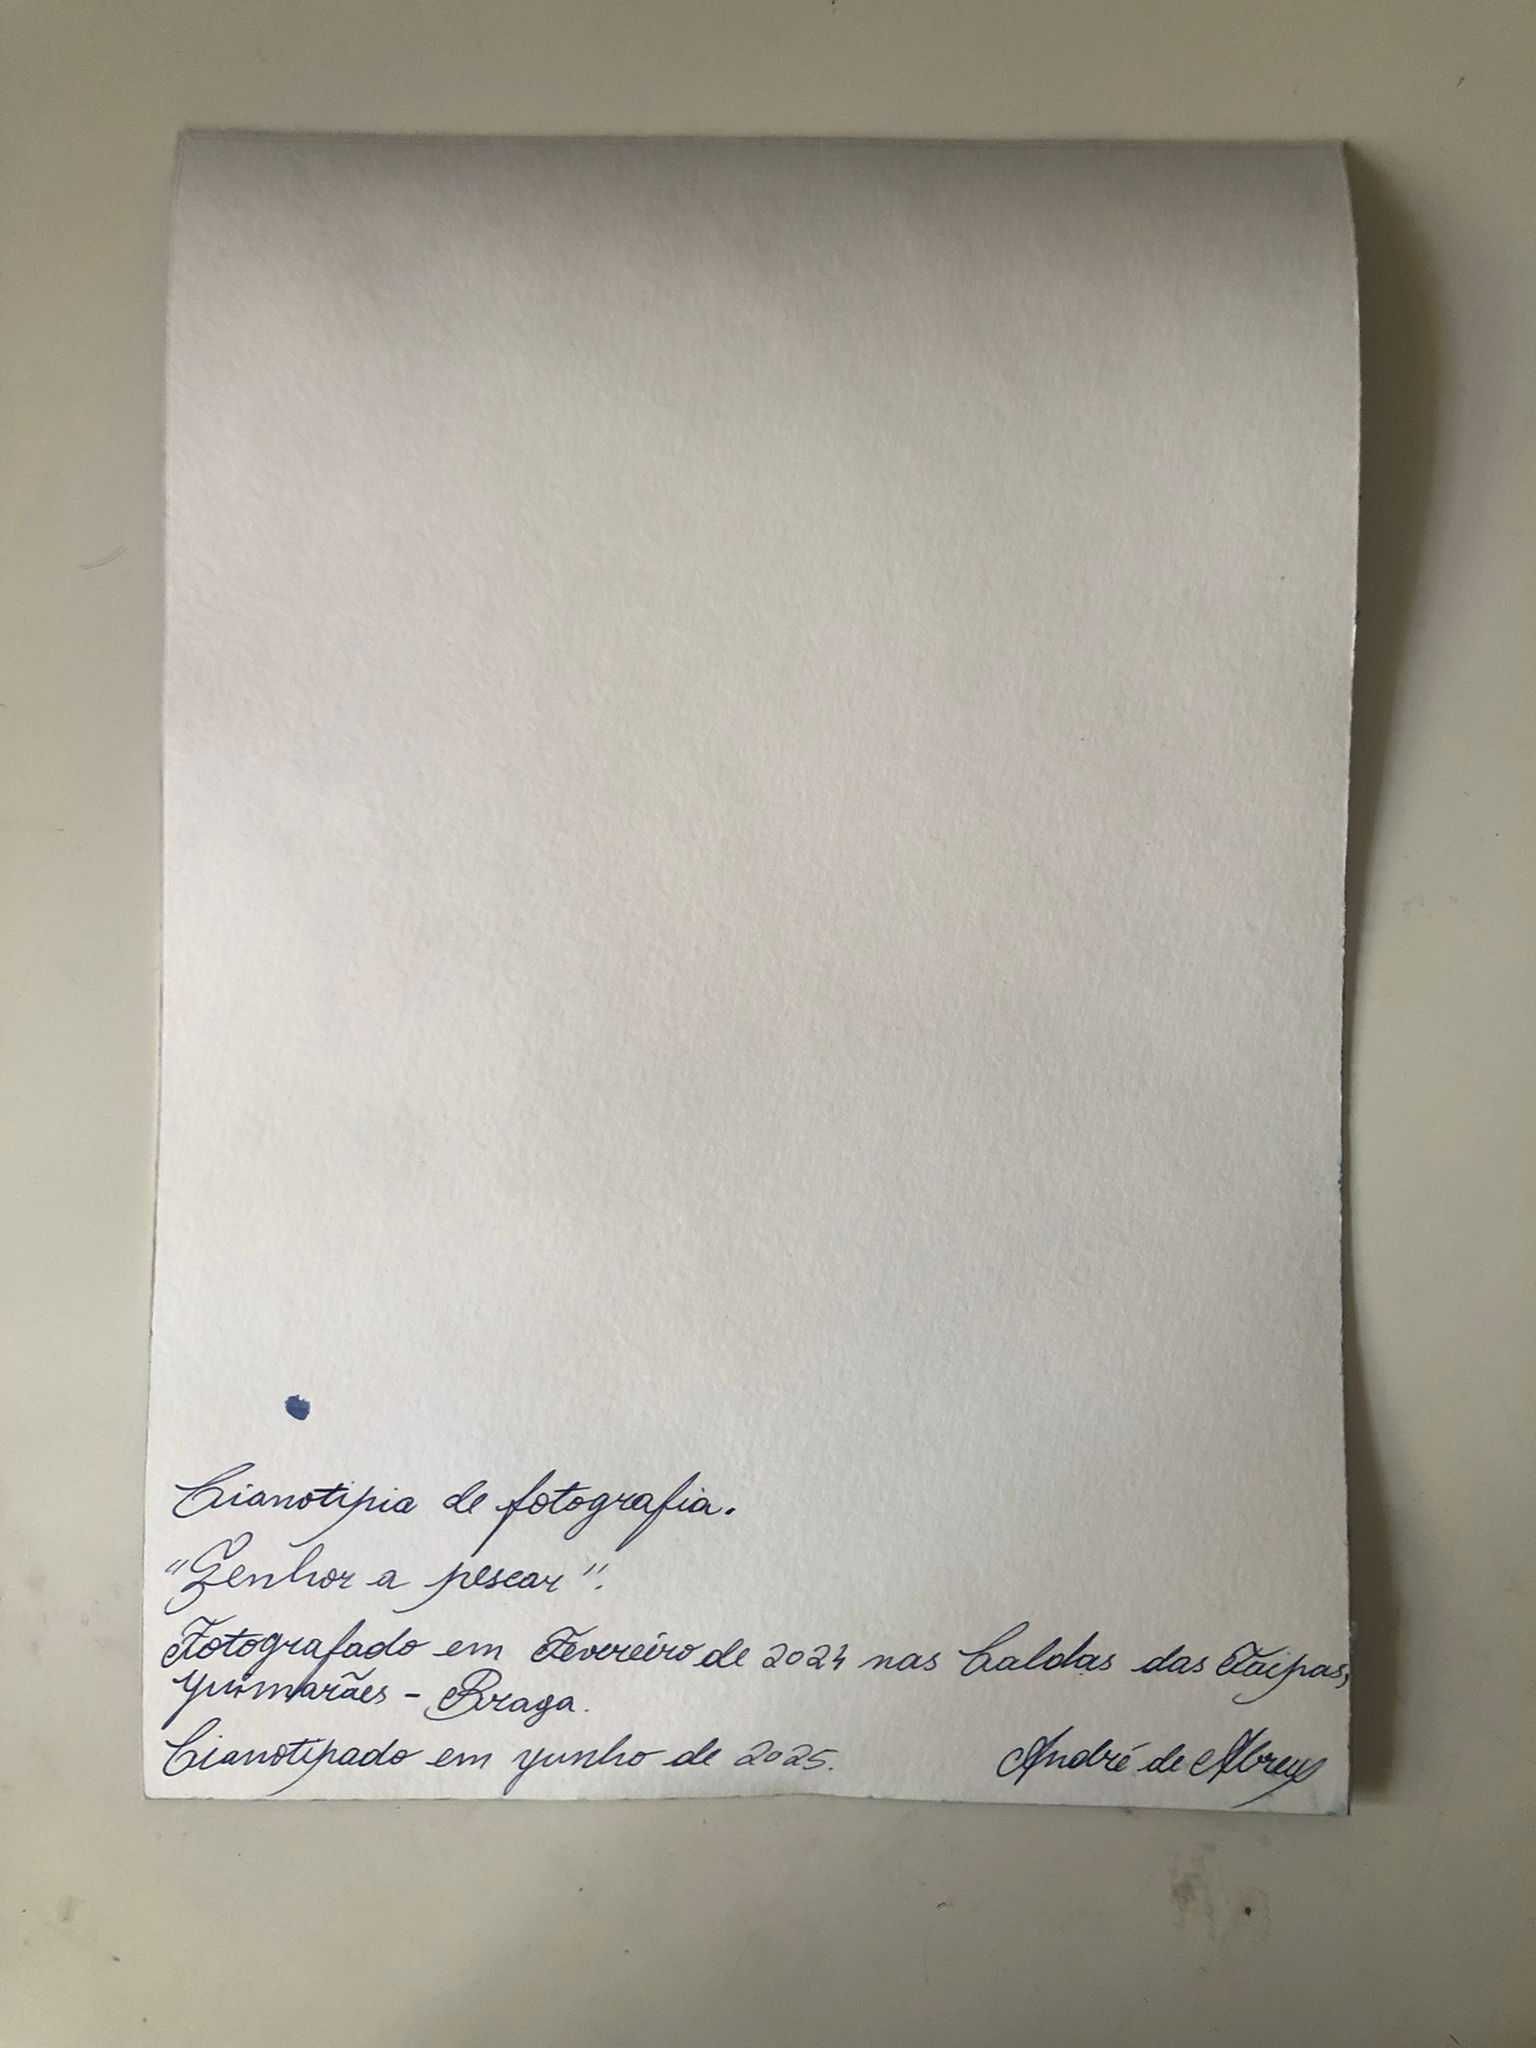 Cianotipia de fotografia.
"Senhor a pescar".
Fotografado em Fevereiro de 2024 nas Caldas das Taipas,
Guimarães - Braga.
Cianotipado em Junho de 2025.
André de Abreu